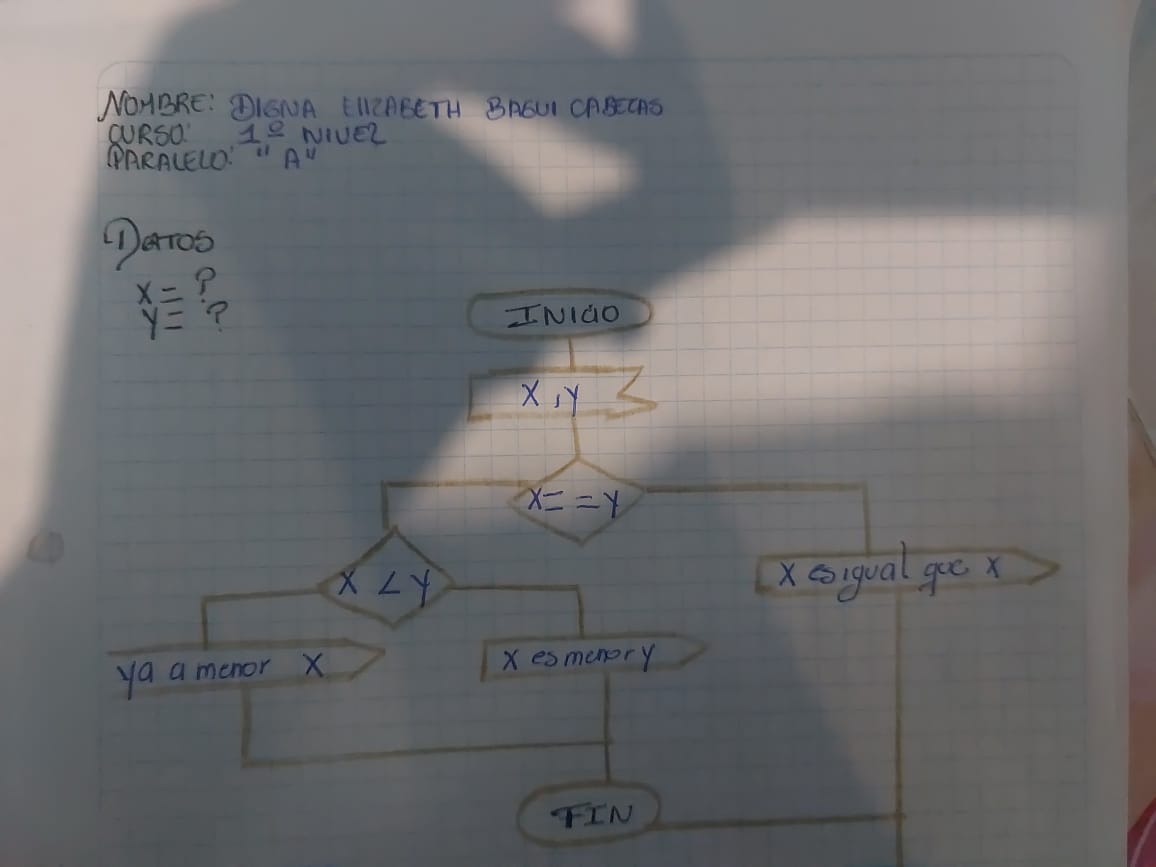 NOMBRE: DIGNA ELIZABETH BAGUI CABECAS
CURSO: 1º NIVEL
PARALELO: "A"
DATOS
X = ?
Y = ?
INICIO
X, Y
X = = Y
X < Y
X es igual que X
ya a menor X
X es menor y
FIN